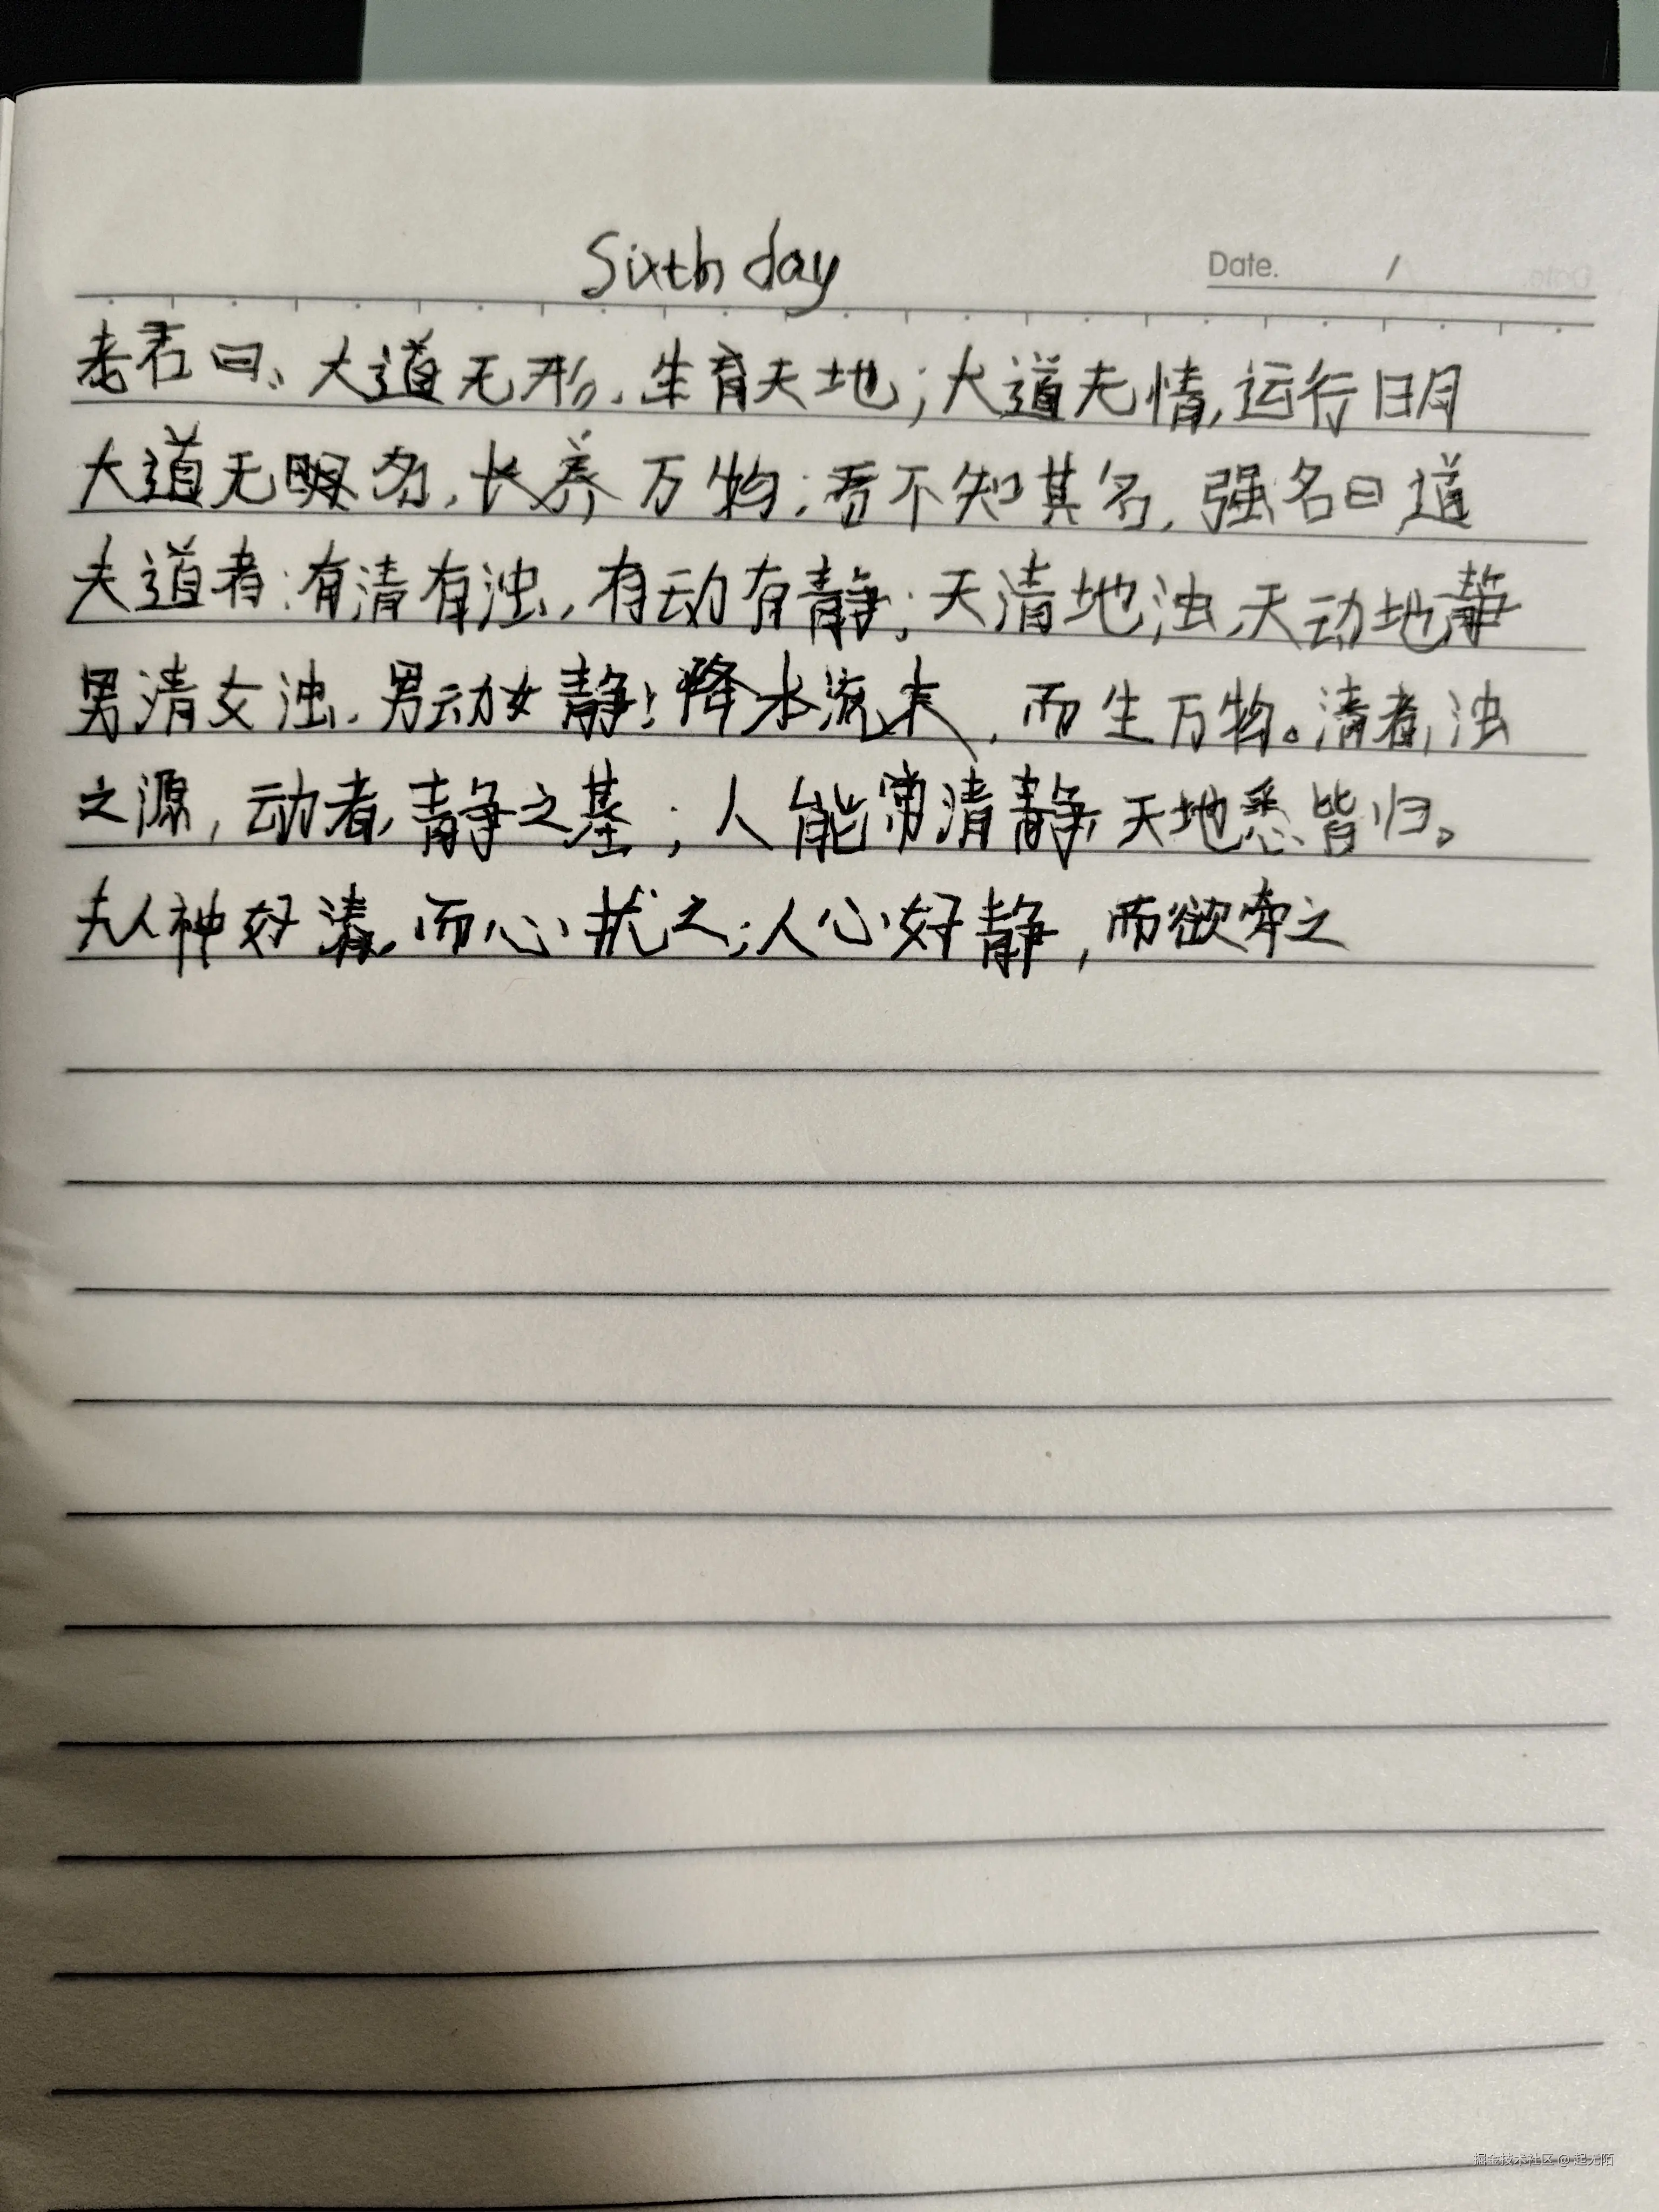 Sixth day
Date. /
老君曰、大道无形,生育天地;大道无情,运行日月
大道无名,长养万物;吾不知其名,强名曰道
夫道者:有清有浊,有动有静;天清地浊,天动地静
男清女浊,男动女静!降本流末,而生万物。清者,浊
之源,动者,静之基;人能常清静,天地悉皆归。
夫人神好清,而心扰之;人心好静,而欲牵之
掘金技术社区 @ 起无陌